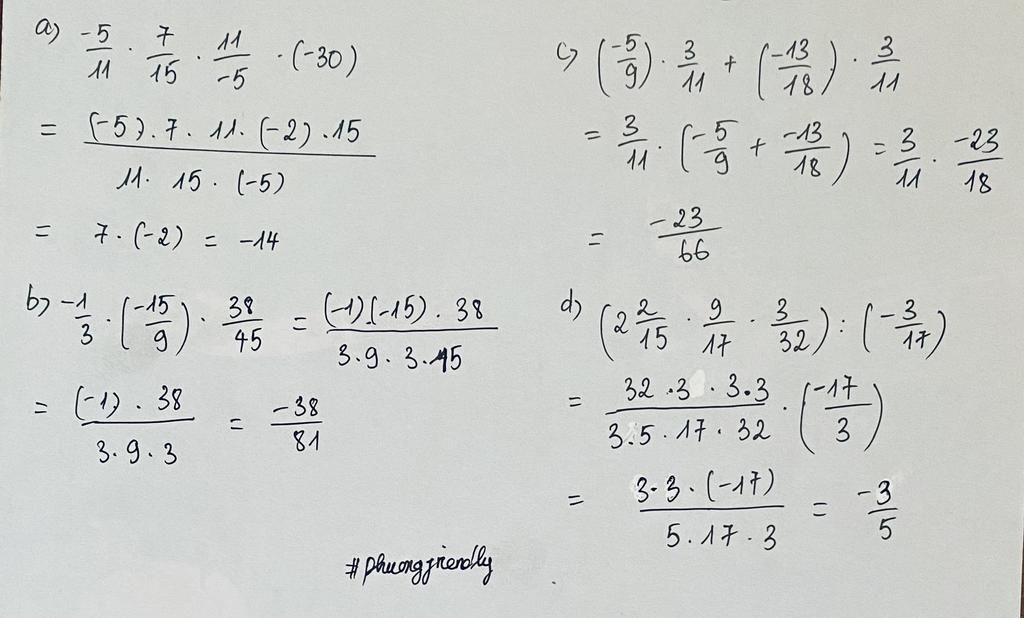 a) -5/11 · 7/15 · 11/-5 · (-30)
= (-5) . 7 . 11 . (-2) . 15 / 11 . 15 . (-5)
= 7 . (-2) = -14
b) -1/3 · (-15/9) · 38/45 = (-1).(-15) . 38 / 3 . 9 . 3 . 15
= (-1) . 38 / 3 . 9 . 3 = -38/81
c) (-5/9) · 3/11 + (-13/18) · 3/11
= 3/11 · (-5/9 + -13/18) = 3/11 · -23/18
= -23/66
d) (2 2/15 · 9/17 · 3/32) : (-3/17)
= 32 . 3 . 3 . 3 / 3 . 5 . 17 . 32 · (-17/3)
= 3 . 3 . (-17) / 5 . 17 . 3 = -3/5
#phuongfriendly